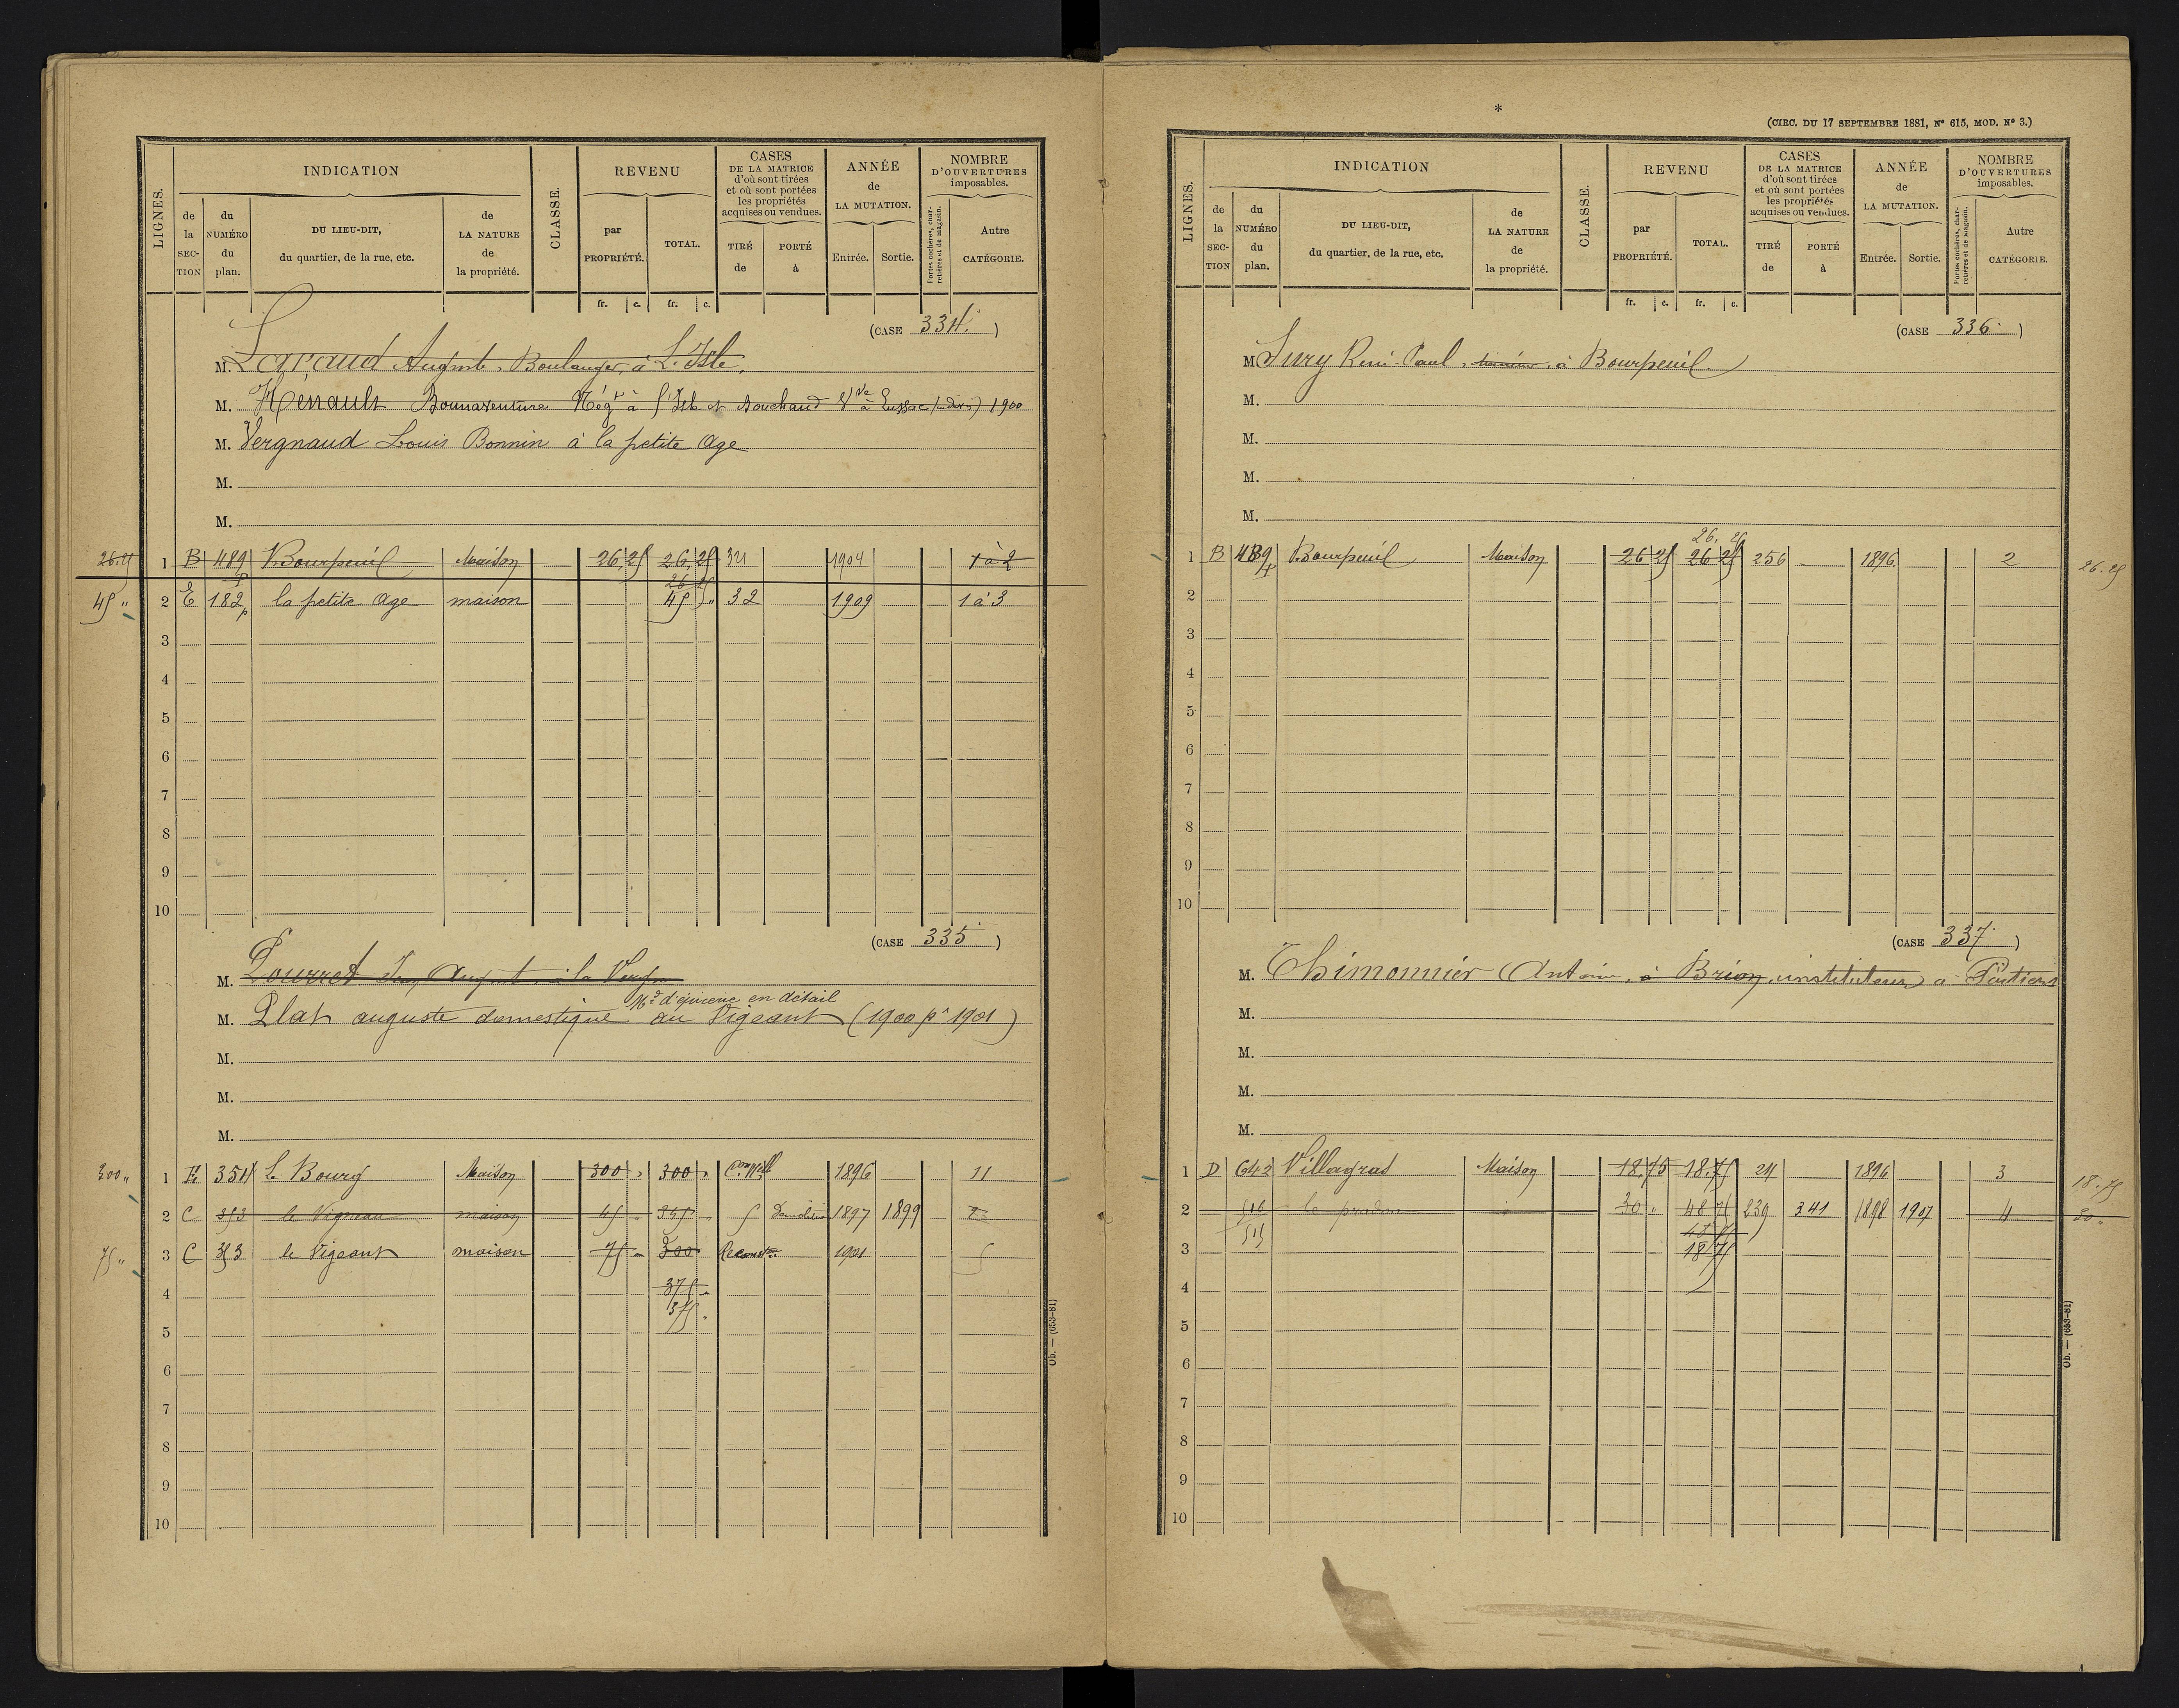 LIGNES.
INDICATION
de la SECTION
du NUMÉRO du plan.
DU LIEU-DIT, du quartier, de la rue, etc.
de LA NATURE de la propriété.
CLASSE.
REVENU
par PROPRIÉTÉ.
TOTAL.
CASES DE LA MATRICE d'où sont tirées et où sont portées les propriétés acquises ou vendues.
TIRÉ de
PORTÉ à
ANNÉE de LA MUTATION.
Entrée.
Sortie.
NOMBRE D'OUVERTURES imposables.
Portes cochères, charretières et de magasin.
Autre CATÉGORIE.
fr. c. fr. c.
(CASE 334.)
M. Auguste, Boulanger, à L'Isle.
M. Hénault Bonnaventure Nég.t à l'Isle et Bouchaud Vve à Lussac 1900
M. Vergnaud Louis Bonnin à la petite Age
M.
M.
26.25 1 B 489 p Bourpeuil Maison 26 25 26 25 34 1904 1 à 2
26 25
45 " 2 E 182 p la petite Age maison 45 " 32 1909 1 à 3
3
4
5
6
7
8
9
10
(CASE 335)
M. Pourret Jean August. à la
M. Plat auguste domestique Md d'épicerie en détail au Vigeant (1900 pr 1901)
M.
M.
M.
300 " 1 E 354 Le Bourg Maison 300 " 300 " Con Nelle 1896 11
2 C 353 le Vigeau maison 45 " 345 " 5 1897 1899 2
75 " 3 C 353 le Vigeant maison 75 " 300 Reconst. 1901 5
4 375 "
375 "
5
6
7
8
9
10
Ob. — (653-81)
*
(CIRC. DU 17 SEPTEMBRE 1881, Nº 615, MOD. Nº 3.)
LIGNES.
INDICATION
de la SECTION
du NUMÉRO du plan.
DU LIEU-DIT, du quartier, de la rue, etc.
de LA NATURE de la propriété.
CLASSE.
REVENU
par PROPRIÉTÉ.
TOTAL.
CASES DE LA MATRICE d'où sont tirées et où sont portées les propriétés acquises ou vendues.
TIRÉ de
PORTÉ à
ANNÉE de LA MUTATION.
Entrée.
Sortie.
NOMBRE D'OUVERTURES imposables.
Portes cochères, charretières et de magasin.
Autre CATÉGORIE.
fr. c. fr. c.
(CASE 336.)
M. Sury René-Paul, à Bourpeuil
M.
M.
M.
M.
26. 25
1 B 489 p Bourpeuil Maison 26 25 26 25 256 1896 2 26.25
2
3
4
5
6
7
8
9
10
(CASE 337.)
M. Thimonnier (Antoine, à Brion, instituteur) a Poitiers
M.
M.
M.
M.
1 D 642 Villagras Maison 18.75 18.75 24 1896 3 18.75
2 516 le 30 " 48 75 239 341 1898 1907 4 30 "
515 48 75
3 18 75
4
5
6
7
8
9
10
Ob. — (653-81)